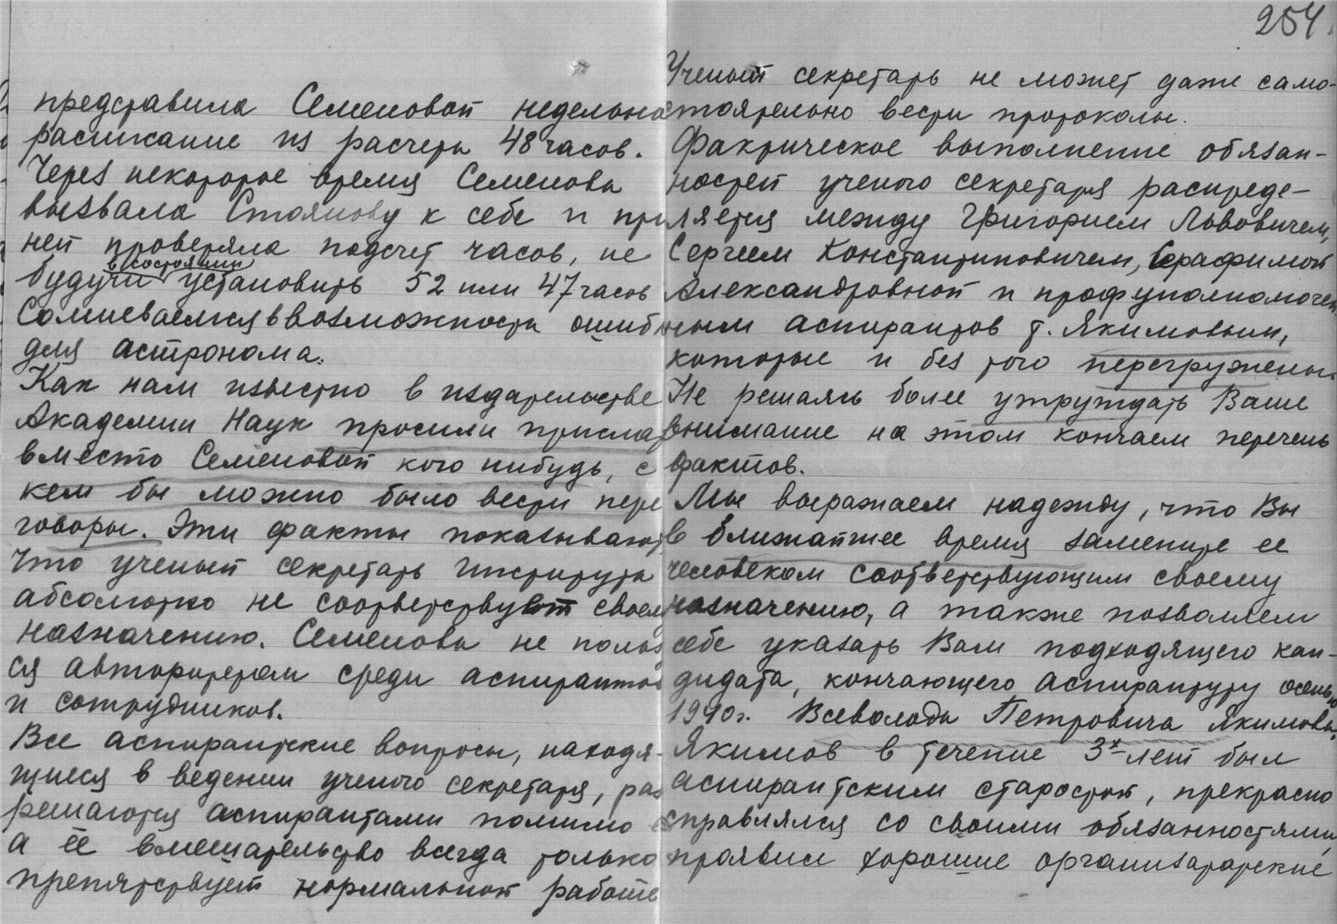 254.
представила Семеновой недельное
расписание из расчета 48 часов.
Через некоторое время Семенова
вызвала Стоянову к себе и при
ней проверяла подсчет часов, не
будучи в состоянии установить 52 или 47 часов
Сомневаемся в возможности ошибки
для астронома.
Как нам известно в издательстве
Академии Наук просили прислать
вместо Семеновой кого нибудь, с
кем бы можно было вести пере
говоры. Эти факты показывают
что ученый секретарь Института
абсолютно не соответствует своему
назначению. Семенова не польз
ся авторитетом среди аспирантов
и сотрудников.
Все аспирантские вопросы, находя-
щиеся в ведении ученого секретаря, раз
решаются аспирантами помимо ее
а её вмешательство всегда только
препятствует нормальной работе
Ученый секретарь не может даже само-
стоятельно вести протоколы.
Фактическое выполнение обязан-
ностей ученого секретаря распреде-
ляется между Григорием Львовичем,
Сергеем Константиновичем, Серафимой
Александровной и профуполномочен
ным аспирантов т. Якимовым,
которые и без того перегружены.
Не решаясь более утруждать Ваше
внимание на этом кончаем перечень
фактов.
Мы выражаем надежду, что Вы
в ближайшее время замените ее
человеком соответствующим своему
назначению, а также позволяем
себе указать Вам подходящего кан-
дидата, кончающего аспирантуру осенью
1940г. Всеволода Петровича Якимова.
Якимов в течение 3х лет был
аспирантским старостой, прекрасно
справлялся со своими обязанностями,
проявил хорошие организаторские